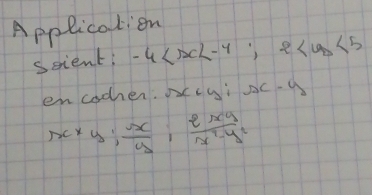 Application
Soient : -4 < x < -1 ; 2 < y < 5
encadrer. x+y ; x - y
x × y ; x/y ; 2xy/(x²-y²)